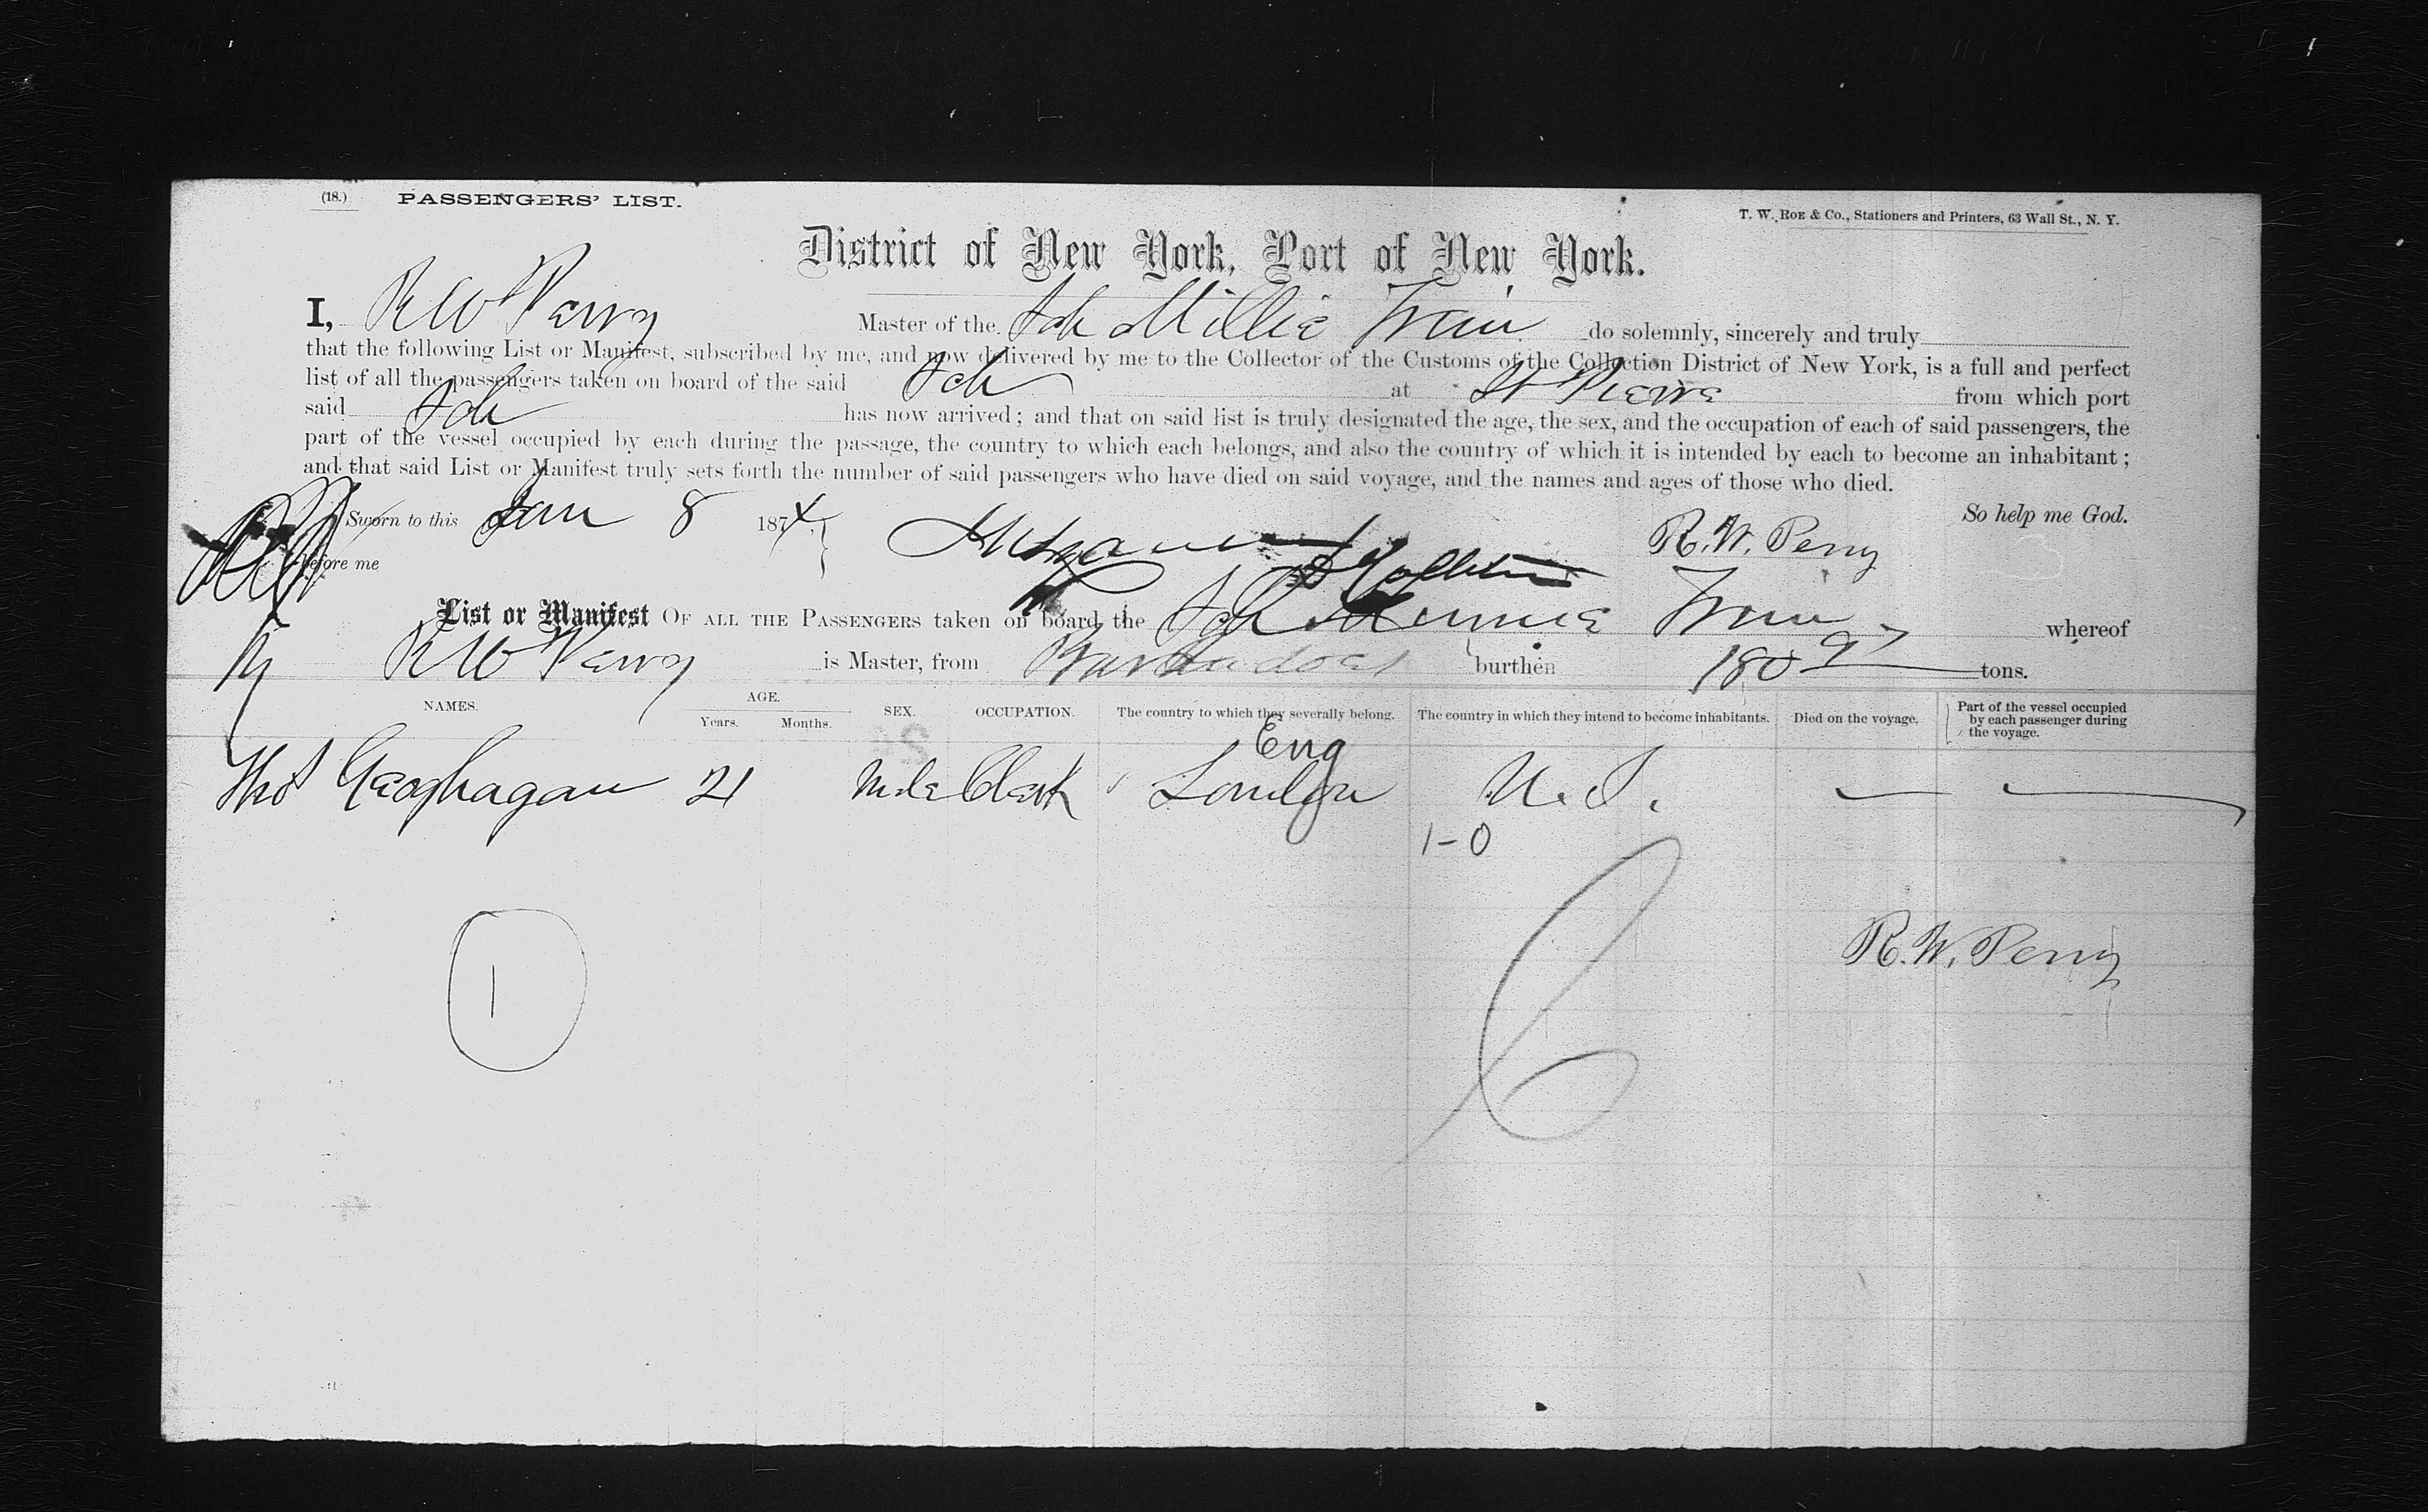 (18.) PASSENGERS' LIST.
T. W. ROE & Co., Stationers and Printers, 63 Wall St., N. Y.
District of New York, Port of New York.
I, R W Perry Master of the Sch Millie Trim do solemnly, sincerely and truly
that the following List or Manifest, subscribed by me, and now delivered by me to the Collector of the Customs of the Collection District of New York, is a full and perfect
list of all the passengers taken on board of the said Sch at St Pierre from which port
said Sch has now arrived; and that on said list is truly designated the age, the sex, and the occupation of each of said passengers, the
part of the vessel occupied by each during the passage, the country to which each belongs, and also the country of which it is intended by each to become an inhabitant;
and that said List or Manifest truly sets forth the number of said passengers who have died on said voyage, and the names and ages of those who died.
Sworn to this Jan 8 1874 So help me God.
before me R. W. Perry
List or Manifest OF ALL THE PASSENGERS taken on board the Sch Trim whereof
R W Perry is Master, from burthen 180 97 tons.
NAMES. AGE. Years. Months. SEX. OCCUPATION. The country to which they severally belong. The country in which they intend to become inhabitants. Died on the voyage. Part of the vessel occupied by each passenger during the voyage.
Eng
Thos Geoghagan 21 Male Clerk London U. S.
1-0
R. W. Perry
1